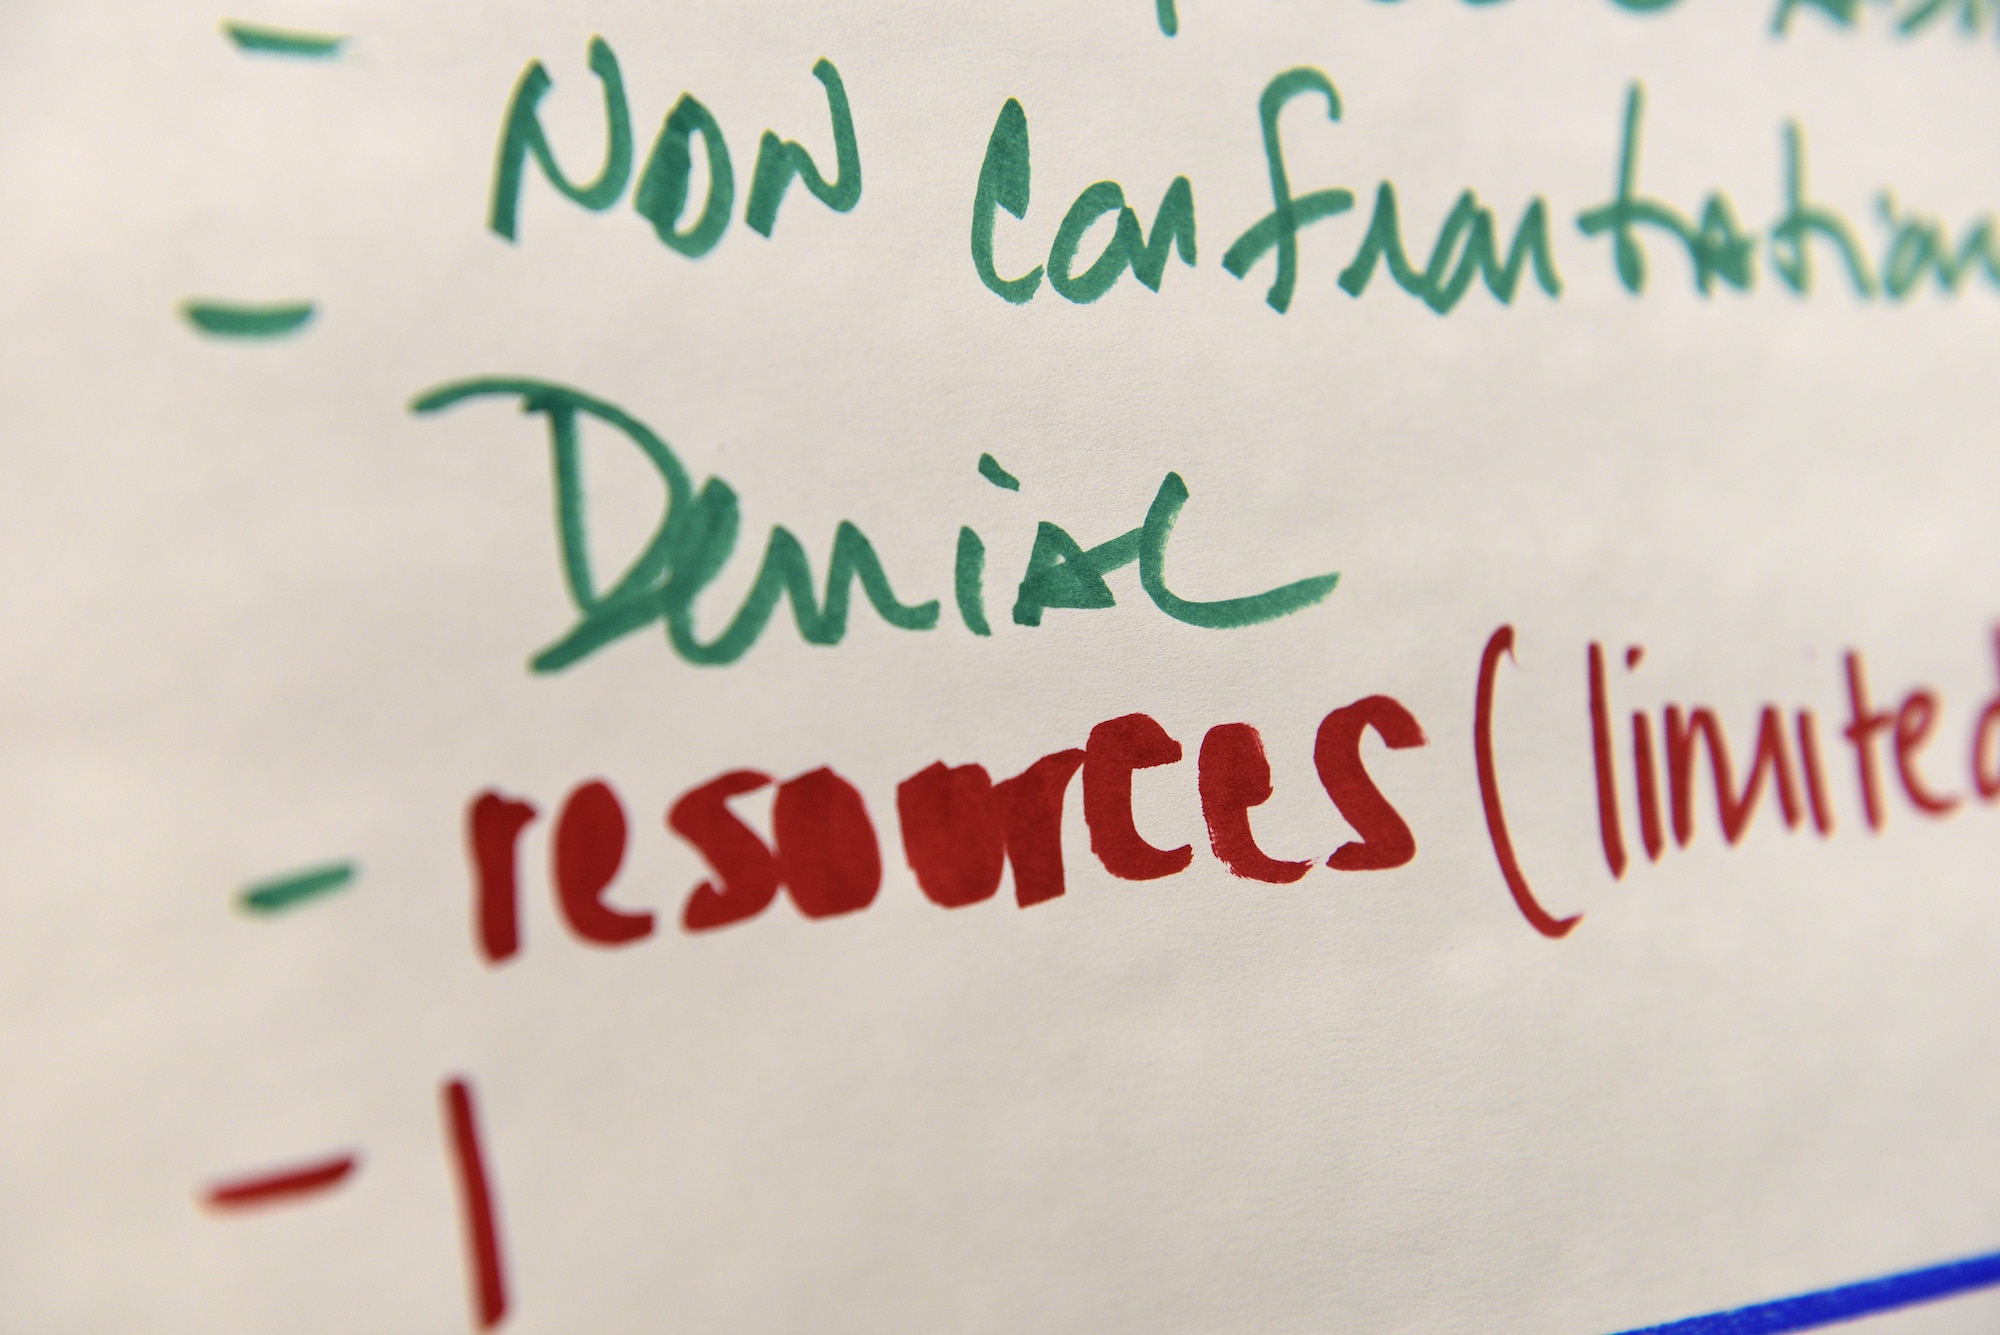 - Non confrontation
- Denial
- resources (limited
-